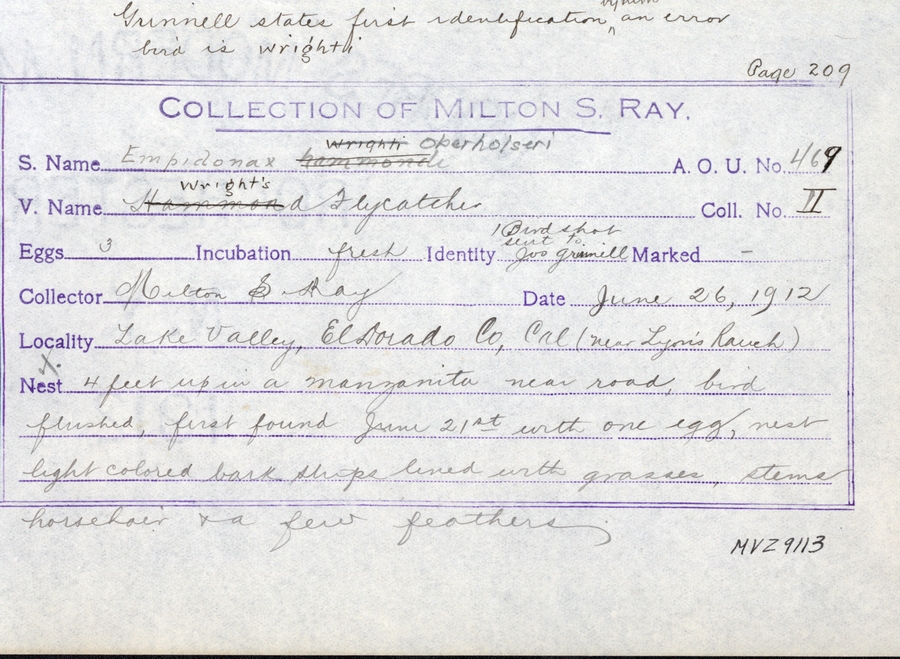 Grinnell states first identification, an error
bird is wrightii
Page 209
COLLECTION OF MILTON S. RAY.
wrighti oberholseri
S. Name Empidonax hammondi A. O. U. No. 469
Wright's
V. Name Hammond Flycatcher Coll. No. II
1 Bird shot
sent to
Eggs 3 Incubation fresh Identity Jos grinnell Marked -
Collector Milton S Ray Date June 26, 1912
Locality Lake Valley, El Dorado Co, Cal (near Lyon's Ranch)
Nest 4 feet up in a manzanita near road, bird
flushed, first found June 21st with one egg, nest
light colored bark strips lined with grasses, stems
horsehair & a few feathers.
MVZ 9113